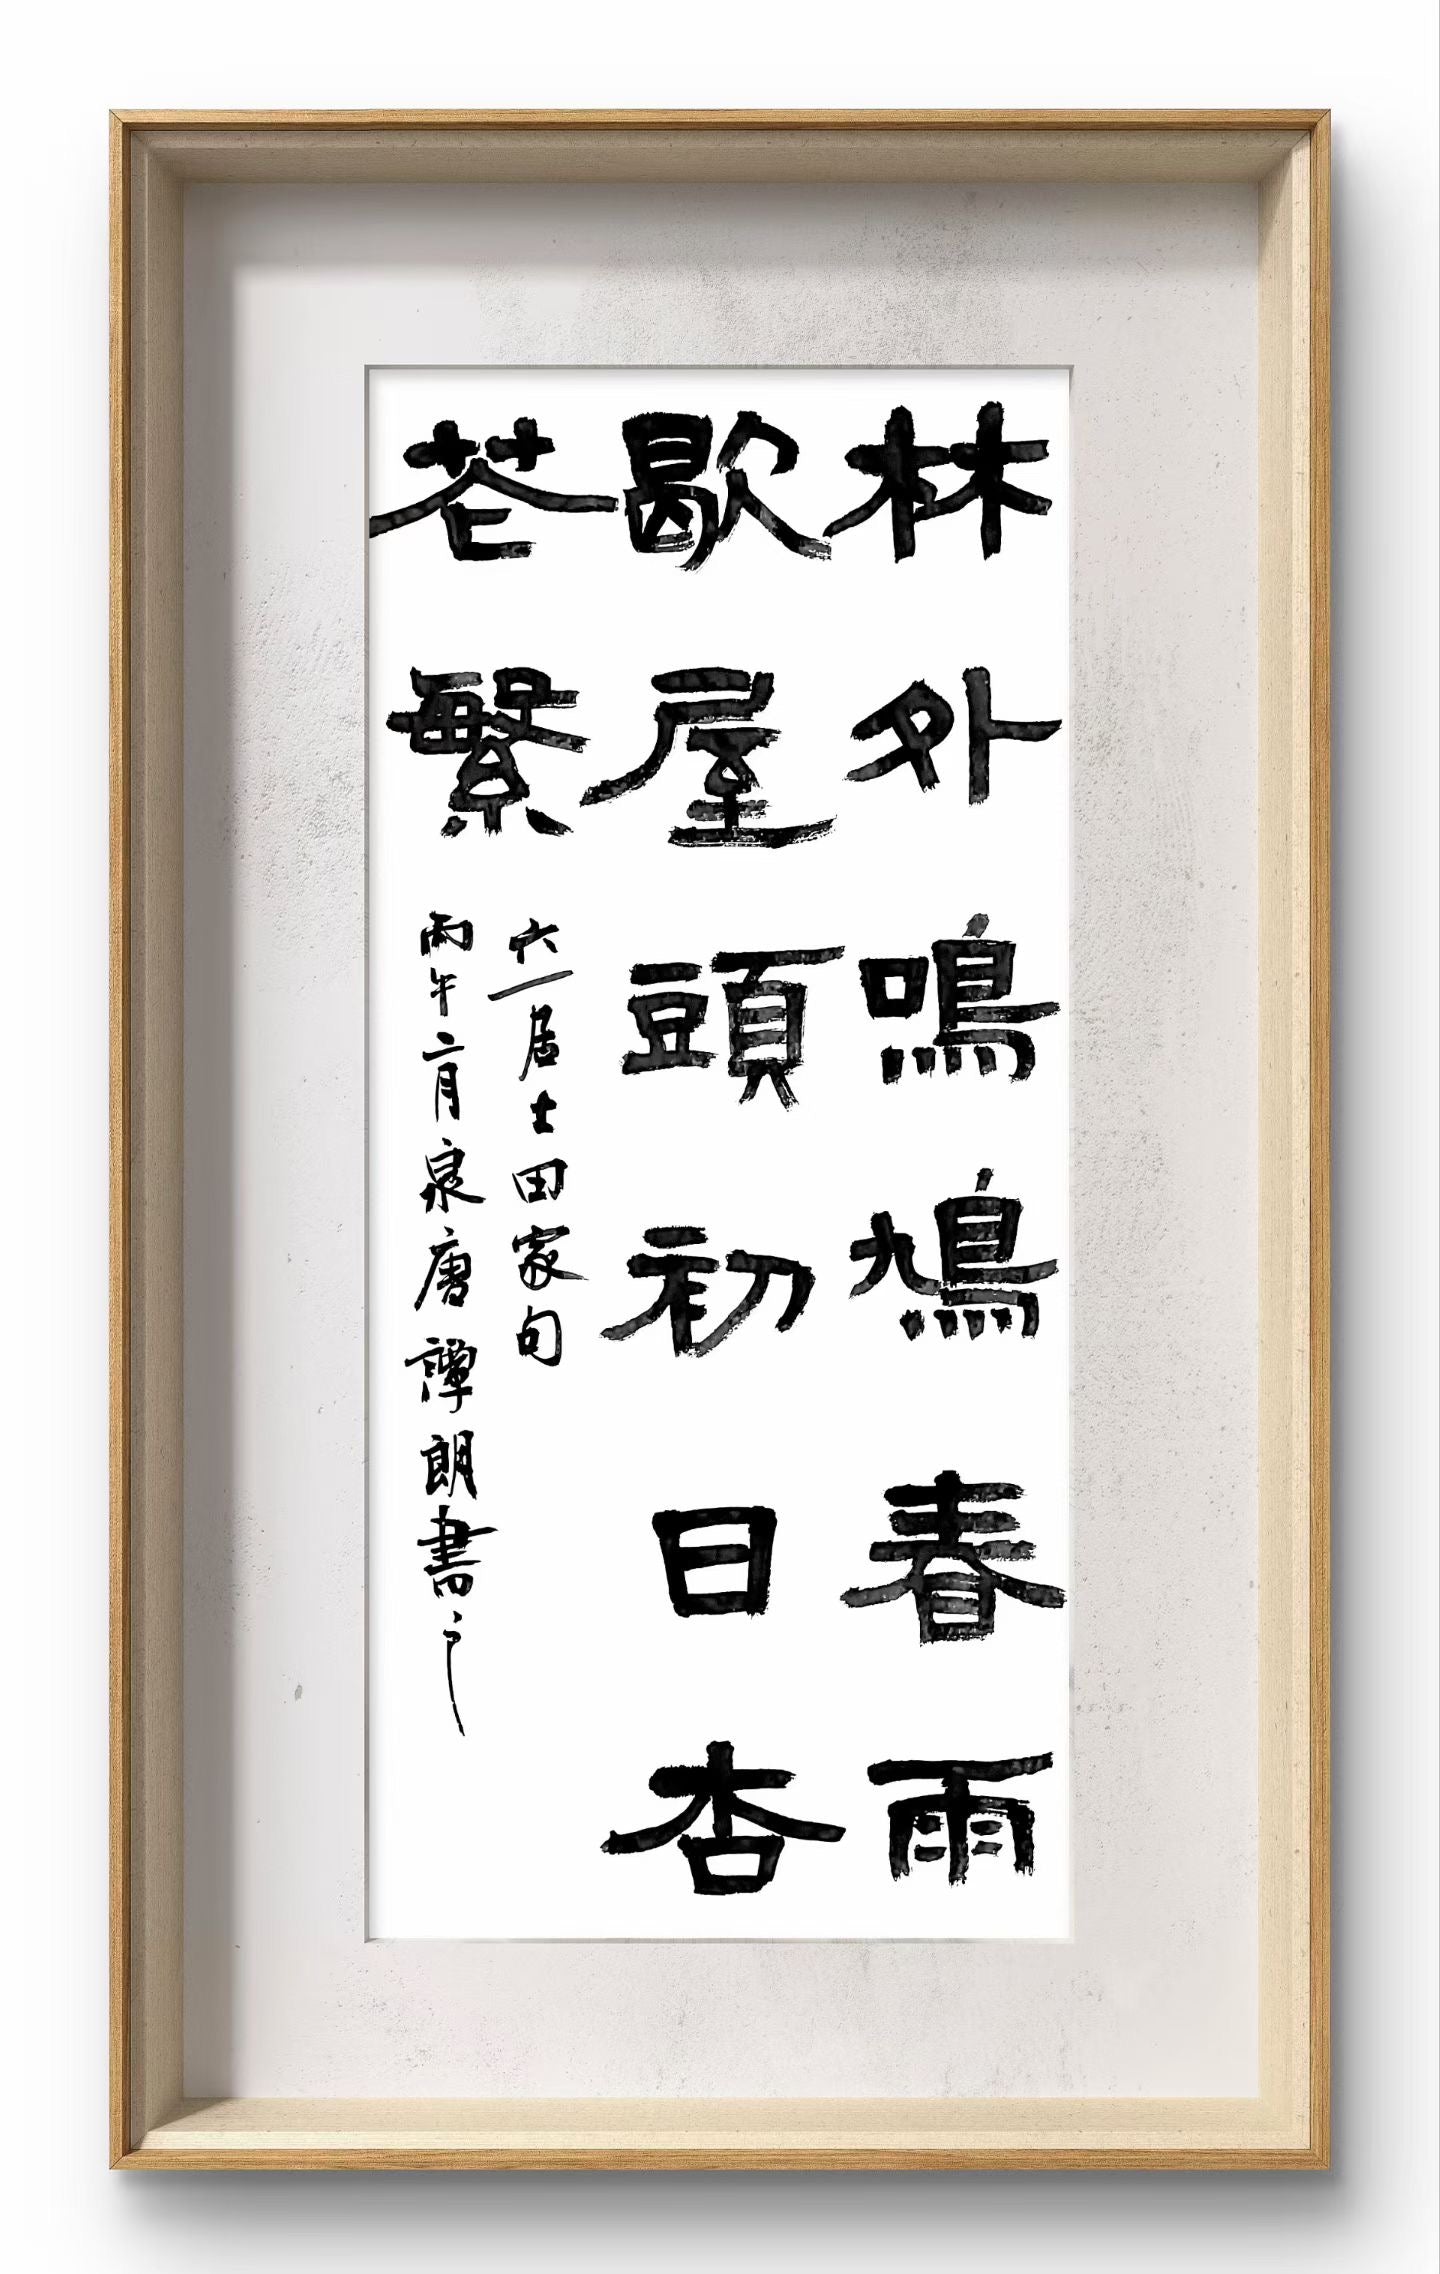 林外鳴鳩春雨
歇屋頭初日杏
花繁
六一居士田家句
丙午二月泉唐譚朗書